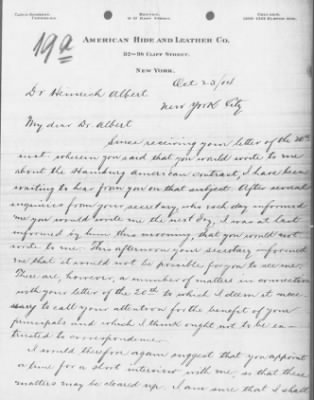 19a
AMERICAN HIDE AND LEATHER CO.
92-98 CLIFF STREET.
NEW YORK.
BOSTON,
CHICAGO,
Oct 23/14
Dr Heinrich Albert
New York City
My dear Dr. Albert
Since receiving your letter of the 20th
inst. wherein you said that you would wrote to me
about the Hamburg American contract, I have been
waiting to hear from you on that subject. After several
inquiries from your secretary, who each day informed
me you would wrote me the next day, I was at last
informed by him this morning, that you would not
wrote to me. This afternoon your secretary informed
me that it would not be possible for you to see me.
There are, however, a number of matters in connection
with your letter of the 20th to which I deem it neces-
sary to call your attention for the benefit of your
principals and which I think ought not to be en-
trusted to correspondence.
I would therefore again suggest that you appoint
a time for a short interview with me, so that these
matters may be cleared up. I am sure that I shall